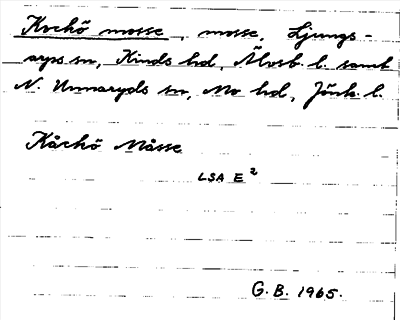 Kochö mosse, mosse, Ljungs-
arps sn, Kinds hd, Älvsb. l. samt
N. Unnaryds sn, Mo hd, Jönk. l.
Kåchö Måsse
LSA E²
G. B. 1965.